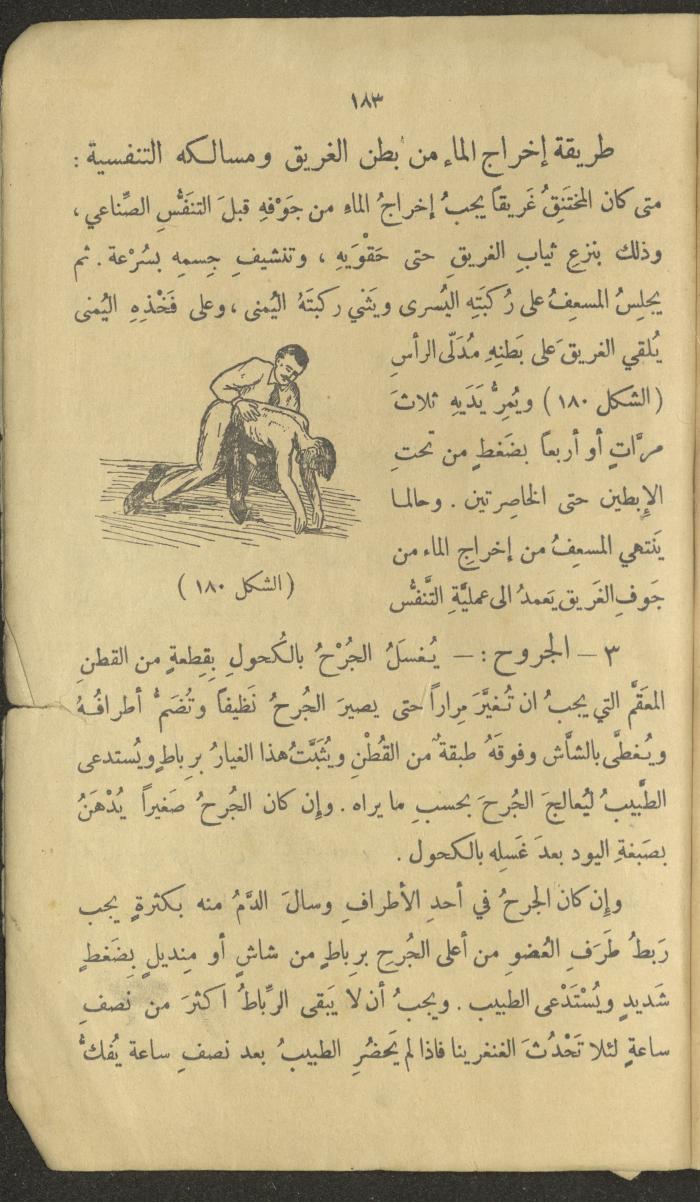 ١٨٣
طريقة إخراج الماء من بطن الغريق ومسالكه التنفسية :
متى كان المختَنِقُ غَريقاً يجبُ إخراجُ الماءِ من جَوْفهِ قبلَ التنفَُّسِ الصِّناعي ،
وذلك بنزعِ ثيابِ الغريقِ حتى حَقْوَيهِ ، وتنشيفِ جِسمِهِ بسُرْعة . ثم
يجلِسُ المسعِفُ على رُكبَتِه اليُسرى ويَثني ركبتَهُ اليُمنى ، وعلى فَخْذِهِ اليُمنى
يُلقي الغريقَ على بَطنِهِ مُدَلّى الرأسِ
(الشكل ١٨٠) ويُمِرُّ يَدَيهِ ثلاثَ
مرَّاتٍ أو أربعاً بضَغطٍ من تحتِ
الإِبطين حتى الخاصِرتين . وحالما
يَنتهي المسعِفُ من إخراجِ الماء من
جَوفِ الغَريق يَعمدُ الى عمليَّةِ التَّنفُّس
(الشكل ١٨٠)
٣ – الجروح : – يُغسَلُ الجُرْحُ بالكُحولِ بقِطعةٍ من القطنِ
المعَقَّم التي يجبُ ان تُغيَّرَ مِراراً حتى يصيرَ الجُرحُ نَظيفاً وتُضَمُّ أطرافُهُ
ويُغطَّى بالشَّاش وفوقَهُ طبقةٌ من القُطْنِ ويُثَبَّتُ هذا الغيارُ برباطٍ ويُستدعى
الطَّبيبُ ليُعالجَ الجُرحَ بحسبِ ما يراه . وإن كان الجُرحُ صَغيراً يُدْهَنُ
بصَبغةِ اليود بعدَ غَسلِه بالكحول .
وإِن كان الجرحُ في أحدِ الأطرافِ وسالَ الدَّمُ منه بكثرةٍ يجب
رَبطُ طَرَفِ العُضوِ من أعلى الجُرحِ برباطٍ من شاشٍ أو مِنديلٍ بِضَغطٍ
شَديدٍ ويُسْتَدْعى الطبيب . ويجبُ أن لا يَبقى الرِّباطُ اكثرَ من نصفِ
ساعةٍ لئلا تَحْدُثَ الغنغرينا فاذا لم يَحضُرِ الطبيبُ بعد نصفِ ساعة يُفكُّ